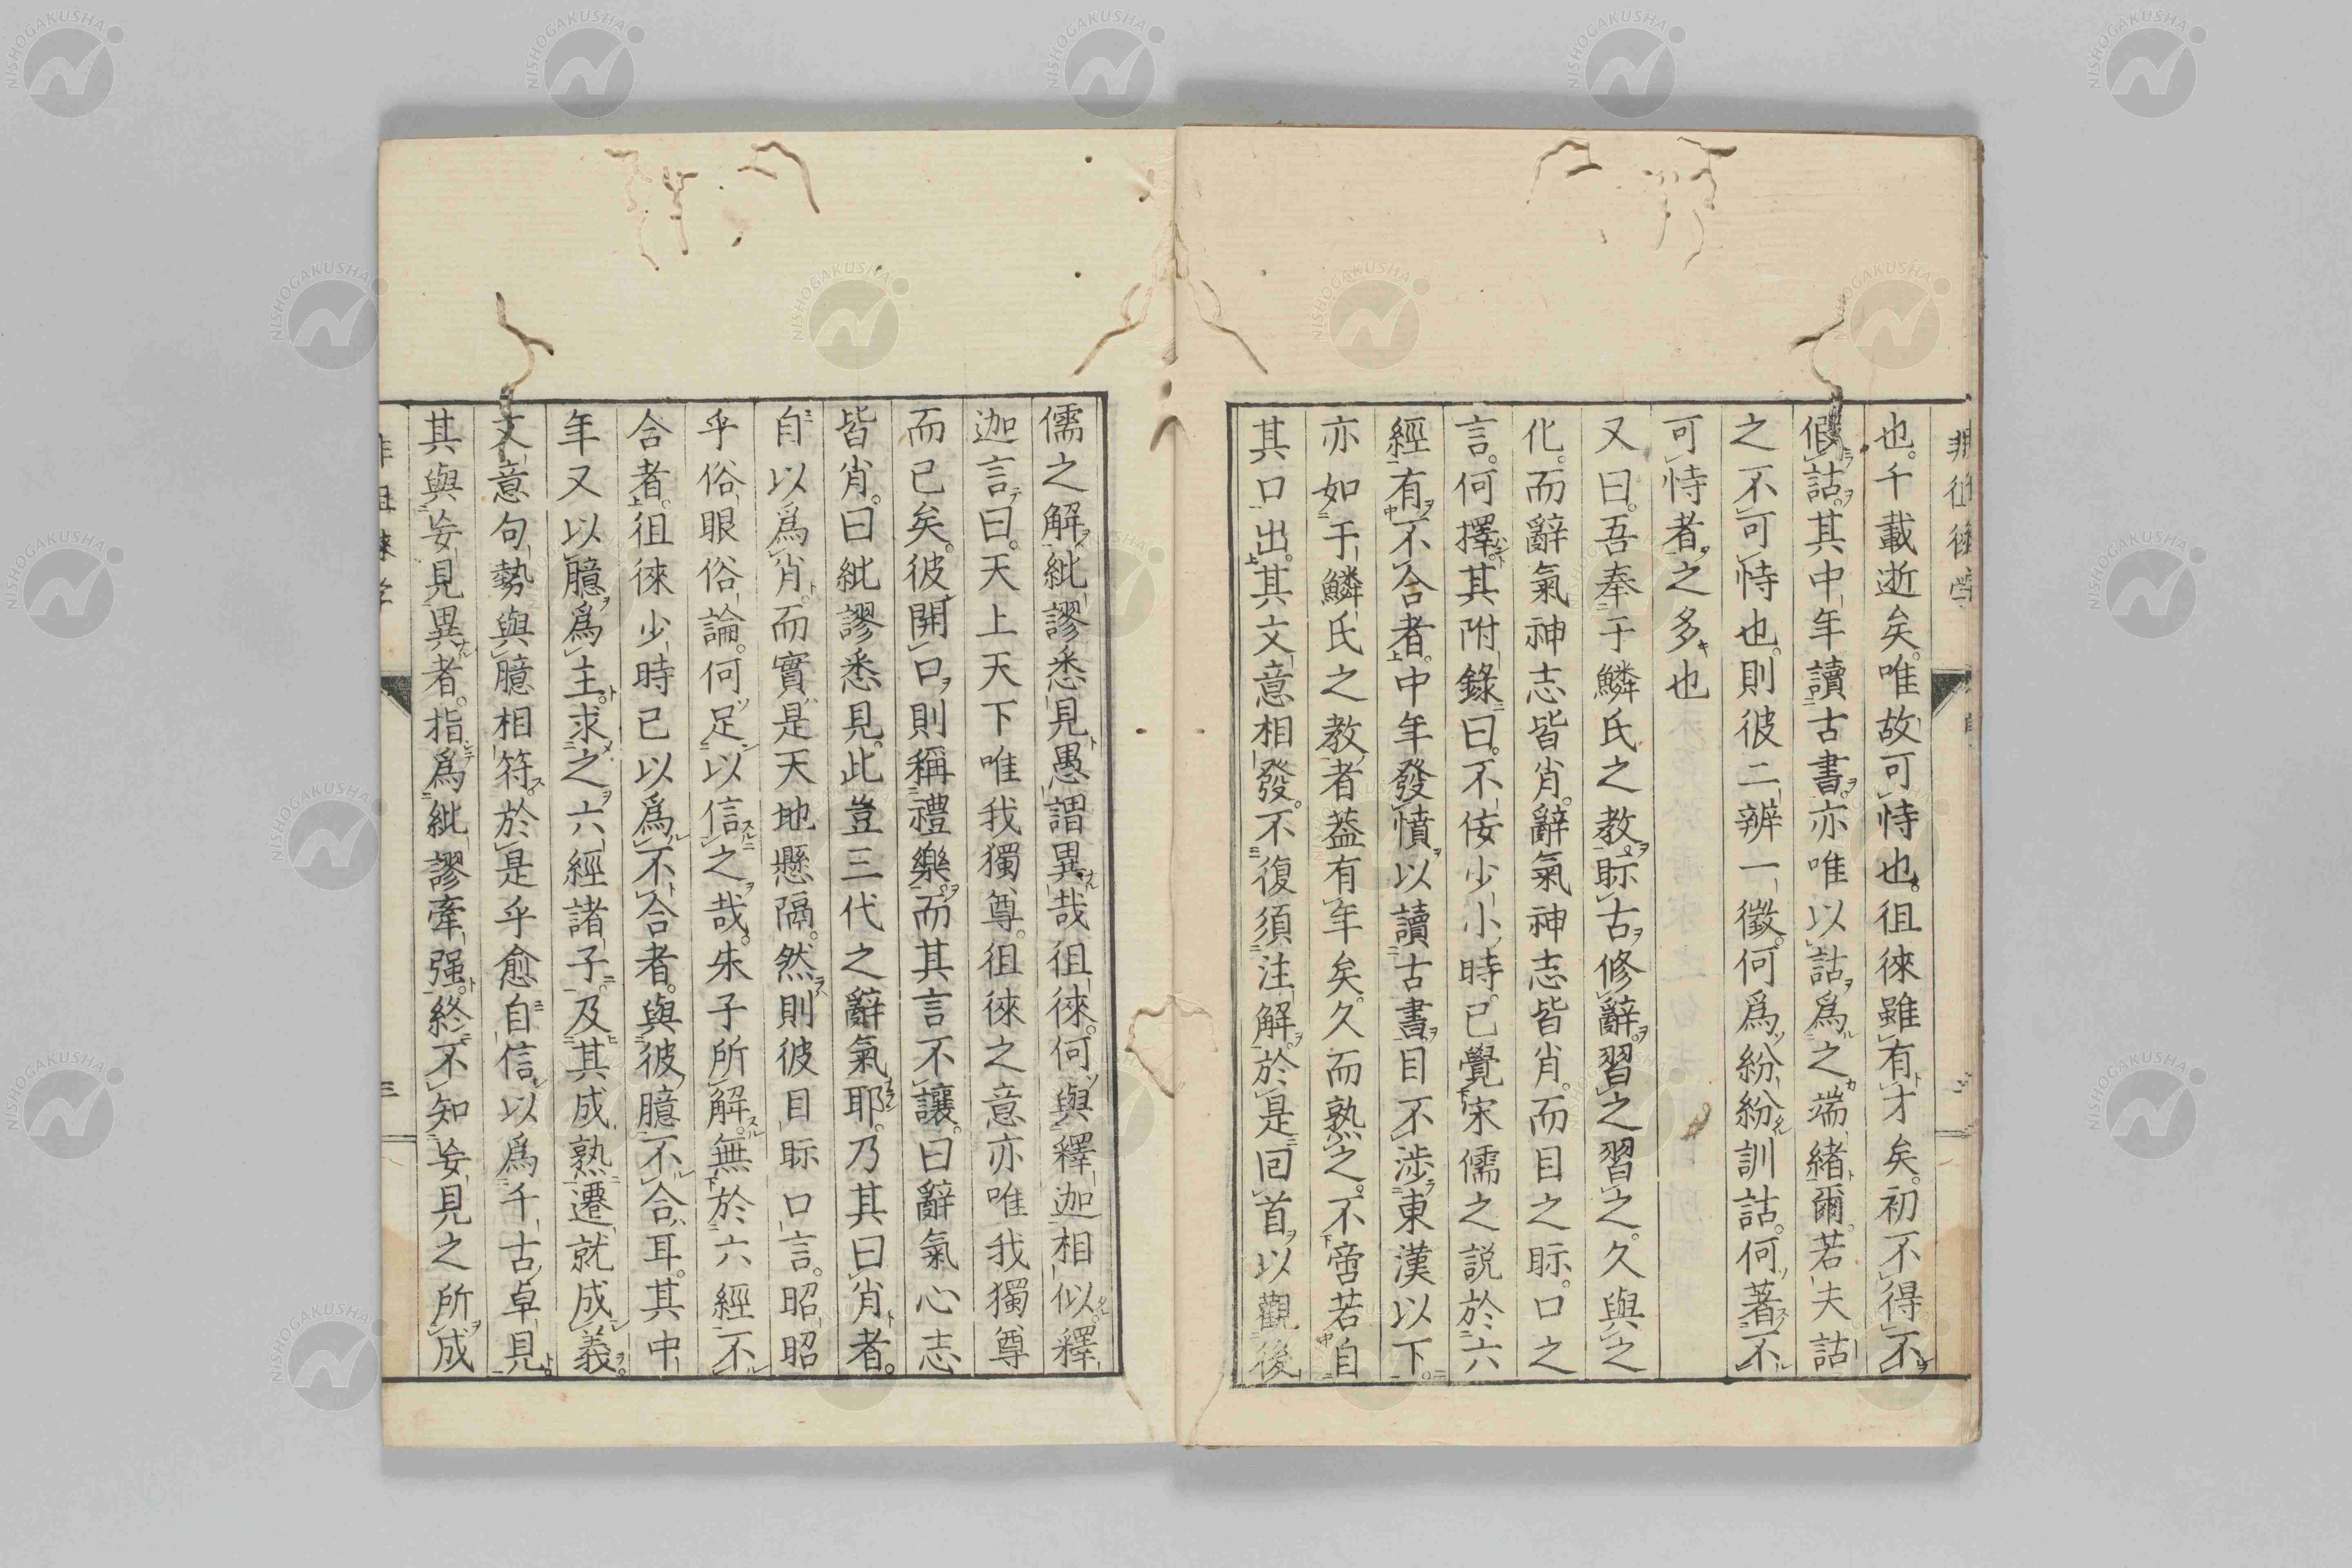 也。千載逝矣。唯故可恃也。徂徠雖有才矣。初不得不
假詁。其中年讀古書。亦唯以詁爲之端緒爾。若夫詁
之不可恃也。則彼二辨一徵。何爲紛紛訓詁。何著不
可恃者之多也
又曰。吾奉于鱗氏之教。眎古修辭。習之習之。久與之
化。而辭氣神志皆肖。辭氣神志皆肖。而目之眎。口之
言。何擇其附錄曰。不佞少小時。已覺宋儒之説於六
經有不合者。中年發憤以讀古書。目不渉東漢以下。
亦如于鱗氏之教者。蓋有年矣。久而熟之。不啻若自
其口出。其文意相發。不復須注解。於是回首以觀後
儒之解。紕謬悉見。愚謂異哉徂徠。何與釋迦相似。釋
迦言曰。天上天下唯我獨尊。徂徠之意亦唯我獨尊
而已矣。彼開口則稱禮樂。而其言不讓。曰辭氣心志
皆肖。曰紕謬悉見。此豈三代之辭氣耶。乃其曰肖者。
自以爲肖。而實是天地懸隔。然則彼目眎口言。昭昭
乎俗眼俗論。何足以信之哉。朱子所解。無於六經不
合者。徂徠少時已以爲不合者。與彼臆不合耳。其中
年又以臆爲主。求之六經諸子。及其成熟遷就成義。
文意句勢與臆相符。於是乎愈自信以爲千古卓見。
其與妄見異者。指爲紕謬牽强。終不知妄見之所成
非徂徠學
三
NISHOGAKUSHA